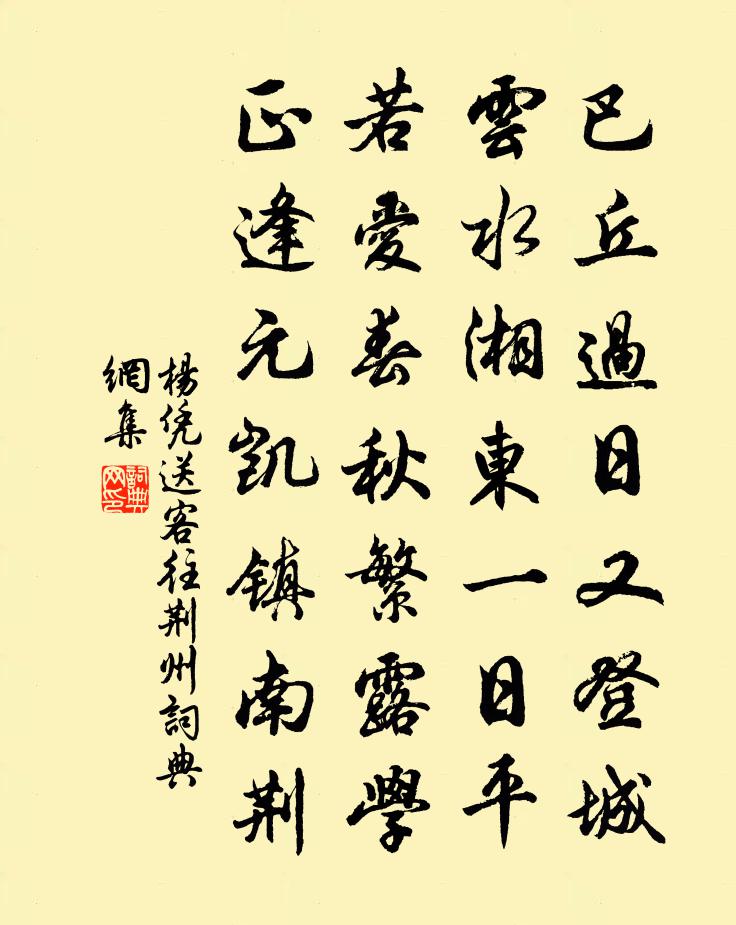 巴丘過日又登城
雲水湘東一日平
若愛春秋繁露學
正逢元凱镇南荆
楊凭送客往荆州詞典
網集
詞典網印